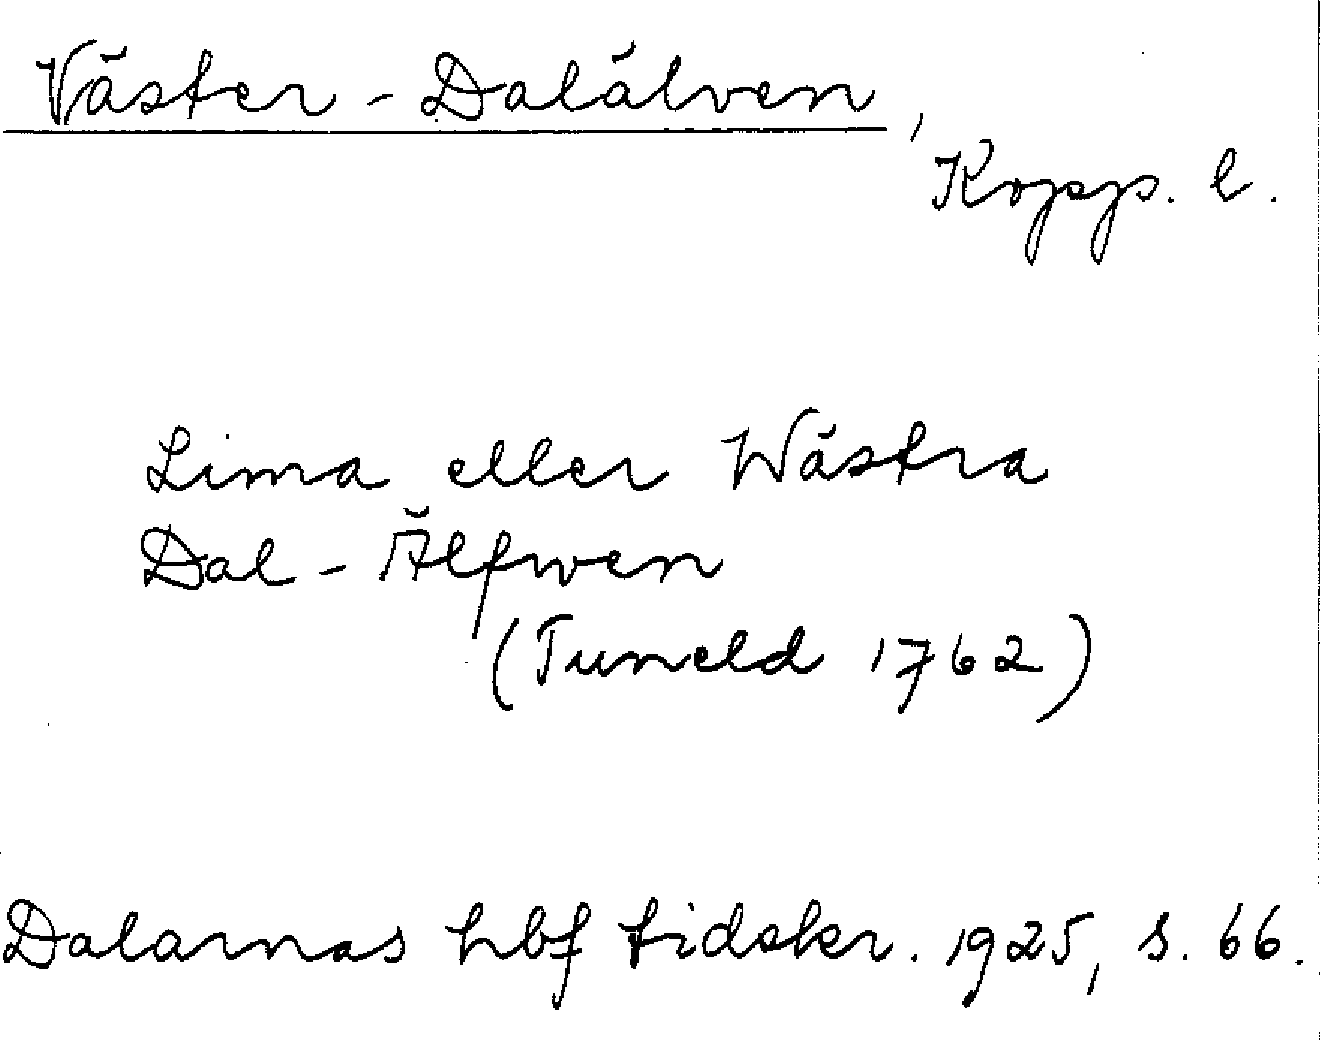 Väster-Dalälven,
Kopp. l.
Lima eller Wästra
Dal-Älfwen
(Tuneld 1762)
Dalarnas hbf tidskr. 1925, s. 66.